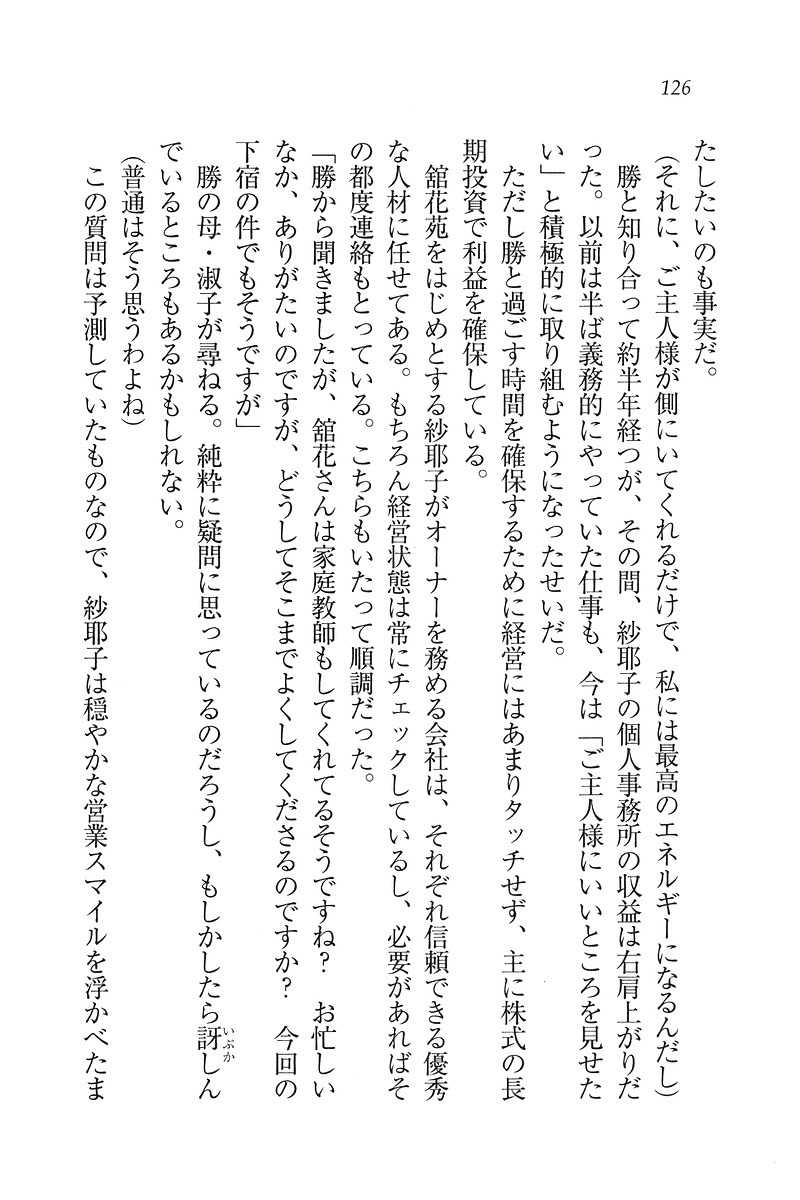 126
たしたいのも事実だ。
（それに、ご主人様が側にいてくれるだけで、私には最高のエネルギーになるんだし）
勝と知り合って約半年経つが、その間、紗耶子の個人事務所の収益は右肩上がりだ
った。以前は半ば義務的にやっていた仕事も、今は「ご主人様にいいところを見せた
い」と積極的に取り組むようになったせいだ。
ただし勝と過ごす時間を確保するために経営にはあまりタッチせず、主に株式の長
期投資で利益を確保している。
舘花苑をはじめとする紗耶子がオーナーを務める会社は、それぞれ信頼できる優秀
な人材に任せてある。もちろん経営状態は常にチェックしているし、必要があればそ
の都度連絡もとっている。こちらもいたって順調だった。
「勝から聞きましたが、舘花さんは家庭教師もしてくれてるそうですね？　お忙しい
なか、ありがたいのですが、どうしてそこまでよくしてくださるのですか？　今回の
下宿の件でもそうですが」
勝の母・淑子が尋ねる。純粋に疑問に思っているのだろうし、もしかしたら訝しん
いぶか
でいるところもあるかもしれない。
（普通はそう思うわよね）
この質問は予測していたものなので、紗耶子は穏やかな営業スマイルを浮かべたま